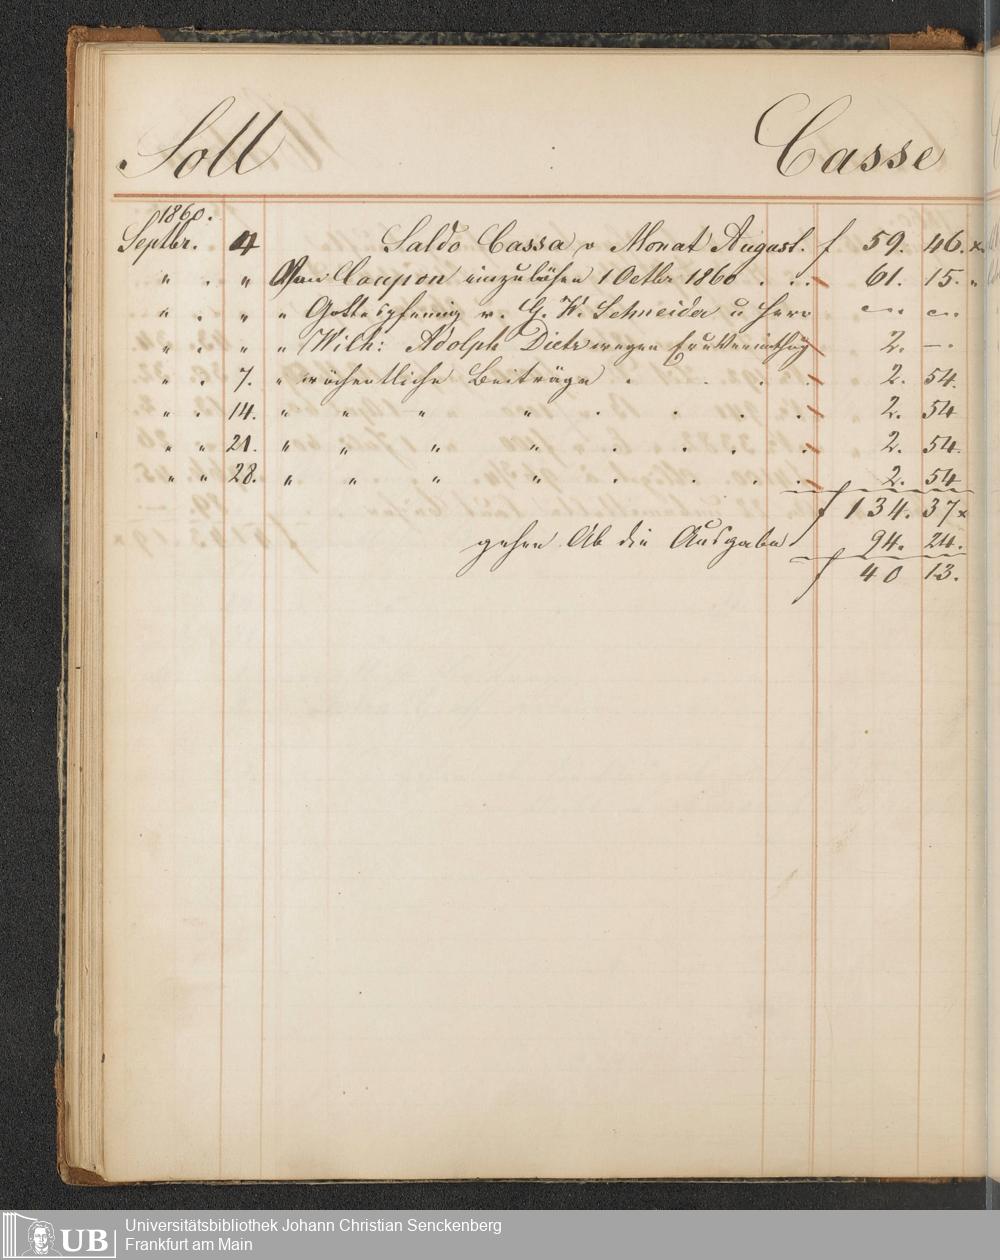 Soll Casse
1860.
Septbr. 4 Saldo Cassa v Monat August. f 59. 46. x
" . " " Von Coupon einzulösen 1 Octbr 1860 . . . 61. 15. "
" . " " Gottespfennig v. G. W. Schneider u Herr
" . " " Wilh: Adolph Dietz wegen 2. — .
" . 7. " wöchentliche Beiträge . . . . 2. 54.
" . 14. " " " " . . . 2. 54
" " 21. " " " " . . . . 2. 54.
" " 28. " " " " . . . 2. 54
f 134. 37 x
gehen Ab die Ausgabe 94. 24.
f 40 13.
UB Universitätsbibliothek Johann Christian Senckenberg
Frankfurt am Main